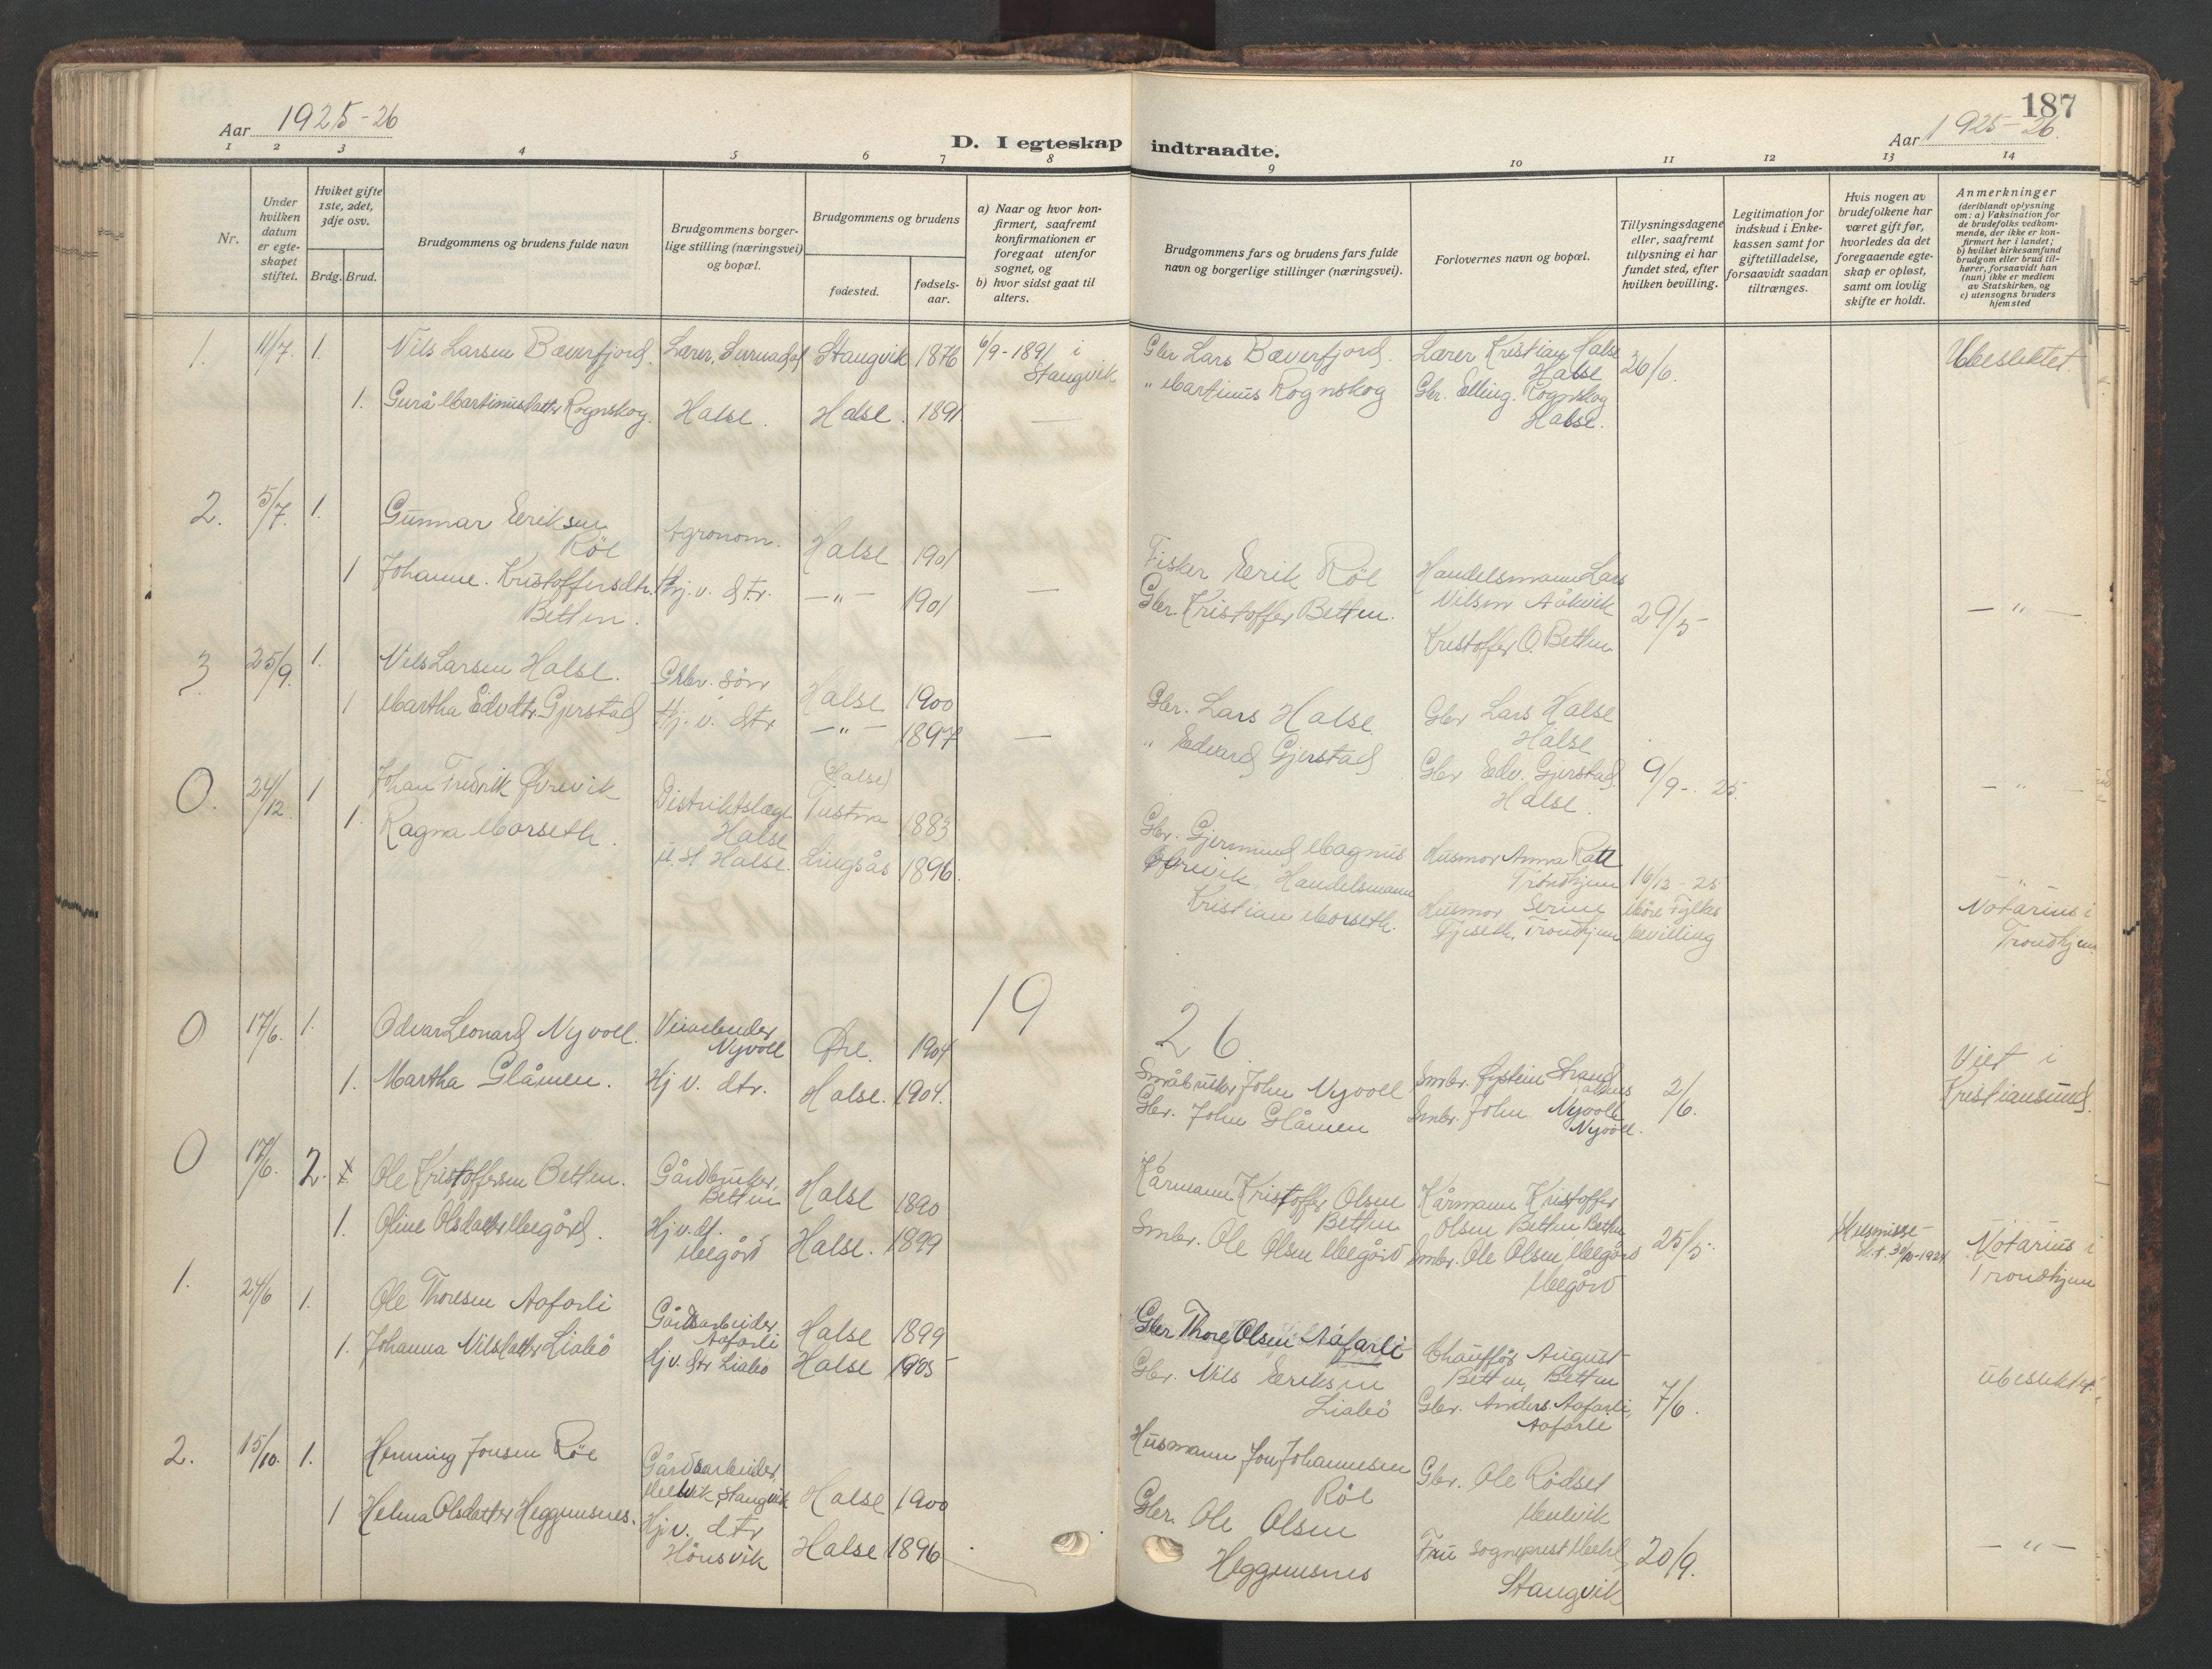 Aar 1925-26
D. I egteskap indtraadte.
187
Aar 1925-26.
1 2 3 4 5 6 7 8 9 10 11 12 13 14
Nr.
Under hvilken datum er egteskapet stiftet.
Hvilket gifte 1ste, 2det, 3dje osv.
Brdg. Brud.
Brudgommens og brudens fulde navn
Brudgommens borgerlige stilling (næringsvei) og bopæl.
Brudgommens og brudens
fødested.
fødselsaar.
a) Naar og hvor konfirmert, saafremt konfirmationen er foregaat utenfor sognet, og
b) hvor sidst gaat til alters.
Brudgommens fars og brudens fars fulde navn og borgerlige stillinger (næringsvei).
Forlovernes navn og bopæl.
Tillysningsdagene eller, saafremt tillysning ei har fundet sted, efter hvilken bevilling.
Legitimation for indskud i Enkekassen samt for giftetilladelse, forsaavidt saadan tiltrænges.
Hvis nogen av brudefolkene har været gift før, hvorledes da det foregaaende egteskap er opløst, samt om lovlig skifte er holdt.
Anmerkninger
(deriblandt oplysning om: a) Vaksination for de brudefolks vedkommende, der ikke er konfirmert her i landet;
b) hvilket kirkesamfund brudgom eller brud tilhører, forsaavidt han (hun) ikke er medlem av Statskirken, og
c) utensogns bruders hjemsted
1. 11/7. 1. Nils Larsen Bæverfjord. Lærer, Surnadal Stangvik 1876 6/9-1891 i Stangvik
Gbr Lars Bæverfjord. Lærer Kristian Halse Halse 26/6. Ubeslektet.
1. Gurå Martinusdatter Rognskog. Halse. Halse. 1891. —
" Martinus Rognskog Gbr. Elling. Rognskog Halse.
2. 5/7. 1. Gunnar Eriksen Röe Agronom. Halse 1901
Fisker Erik Röe Handelsmann Lars Nilsen Aakvik 29/5 — " —
1 Johanne. Kristoffersdtr. Betten. Hj. v. dtr. — " — 1901 —
Gbr. Kristoffer Betten. Kristoffer O. Betten
3. 25/9. 1. Nils Larsen Halse. Gbr. sön Halse 1900
Gbr. Lars Halse Gbr Lars Halse Halse
1 Martha Edvdtr. Gjerstad Hj. v. dtr — " — 1897 —
" Edvard Gjerstad Gbr Edv. Gjerstad Halse. 9/9-. 25. — " —
0. 24/12. 1 Johan Fredrik Øvrevik Distriktslæge Halse (Halse) Tustna 1883
Gbr. Gjermund Magnus Øfrevik Husmor Anna Ratt Trondhjem 16/12-25 — " —
1. Ragna Morseth. 1896.
Handelsmann Kristian Morseth. Husmor Serine Trondhjem Möre Fylkes bevilling Notarius i Trondhjem
19 26
0 17/6. 1. Odvar Leonard Nyvoll. Veiarbeider Nyvoll Øre. 1904
Småbruker John Nyvoll Smbr. Øystein Strand 2/6. Viet i Kristiansund.
1. Martha Glåmen. Hj v. dtr. Halse. 1904.
Gbr. John Glåmen Smbr. John Nyvoll Nyvoll.
0 17/6. 2. Ole Kristoffersen Betten. Gårdbruker, Betten Halse 1890
Kårmann Kristoffer Olsen Betten Kårmann Kristoffer Olsen Betten, Betten 25/5. Notarius i Trondhjem
1. Oline Olsdatter Megård. Hj v. dt. Megård Halse. 1899
Smbr. Ole Olsen Megård Smbr. Ole Olsen, Megård Megård
1. 24/6 1. Ole Thoresen Aafarli Gårdsarbeider Aafarli Halse 1899
Gbr Thore Olsen Aafarli Chauffør August Betten, Betten 7/6. ubeslektet.
1. Johanna Nilsdatter Liabö Hj v. dtr Liabö Halse 1905
Gbr. Nils Eriksen Liabö Gbr. Anders Aafarli, Aafarli
2. 15/10. 1. Henning Jonsen Röe Gårdsarbeider, Stangvik Halse 1900
Husmann Jon Johannesen Röe Gbr. Ole Rödset 20/9. — " —
1 Helma Olsdatter Heggumsnes. Hj v. dtr Hönsvik Halse 1896
Gbr. Ole Olsen Heggumsnes Fru sogneprest Stangvik